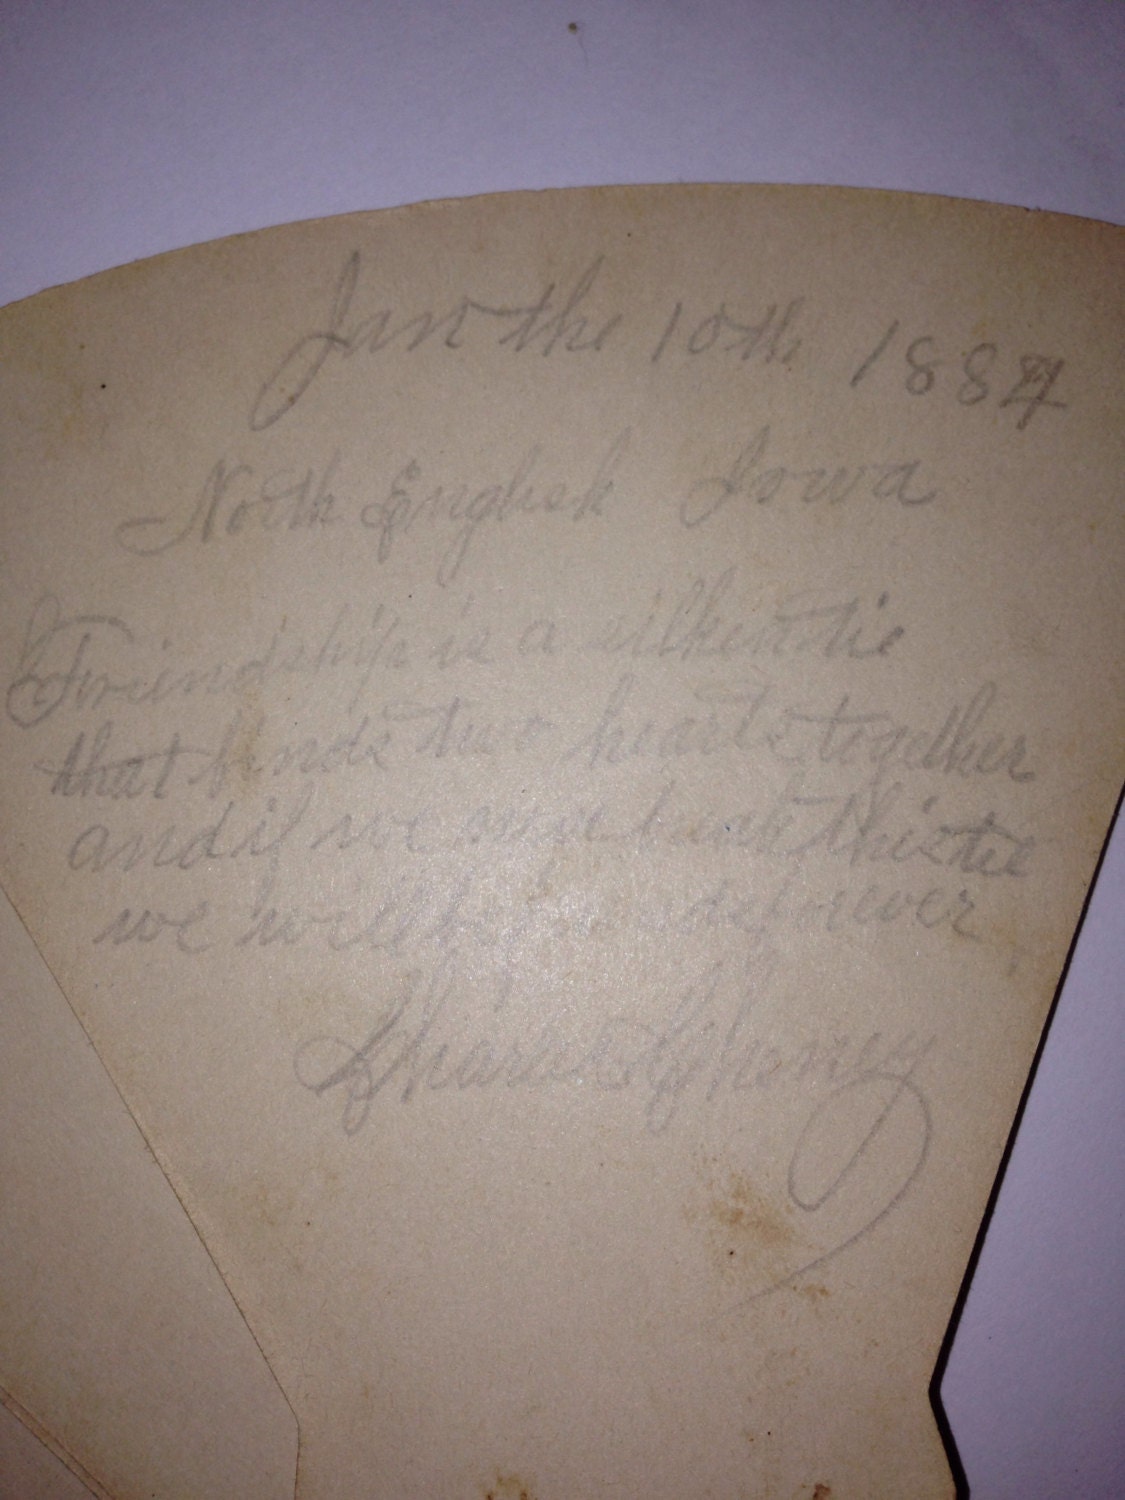 Jan the 10th 1884
North English Iowa
Friendship is a silken tie
that binds two hearts together
and if we ever break this tie
we will be forever
Charlie Choney